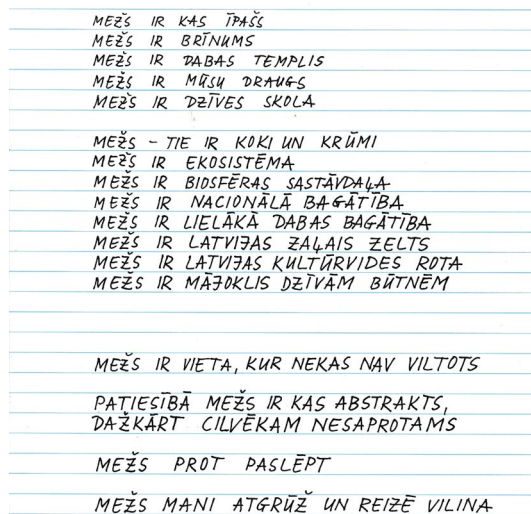 MEŽS IR KAS ĪPAŠS
MEŽS IR BRĪNUMS
MEŽS IR DABAS TEMPLIS
MEŽS IR MŪSU DRAUGS
MEŽS IR DZĪVES SKOLA
MEŽS - TIE IR KOKI UN KRŪMI
MEŽS IR EKOSISTĒMA
MEŽS IR BIOSFĒRAS SASTĀVDAĻA
MEŽS IR NACIONĀLĀ BAGĀTĪBA
MEŽS IR LIELĀKĀ DABAS BAGĀTĪBA
MEŽS IR LATVIJAS ZAĻAIS ZELTS
MEŽS IR LATVIJAS KULTŪRVIDES ROTA
MEŽS IR MĀJOKLIS DZĪVĀM BŪTNĒM
MEŽS IR VIETA, KUR NEKAS NAV VILTOTS
PATIESĪBĀ MEŽS IR KAS ABSTRAKTS,
DAŽKĀRT CILVĒKAM NESAPROTAMS
MEŽS PROT PASLĒPT
MEŽS MANI ATGRŪŽ UN REIZĒ VILINA